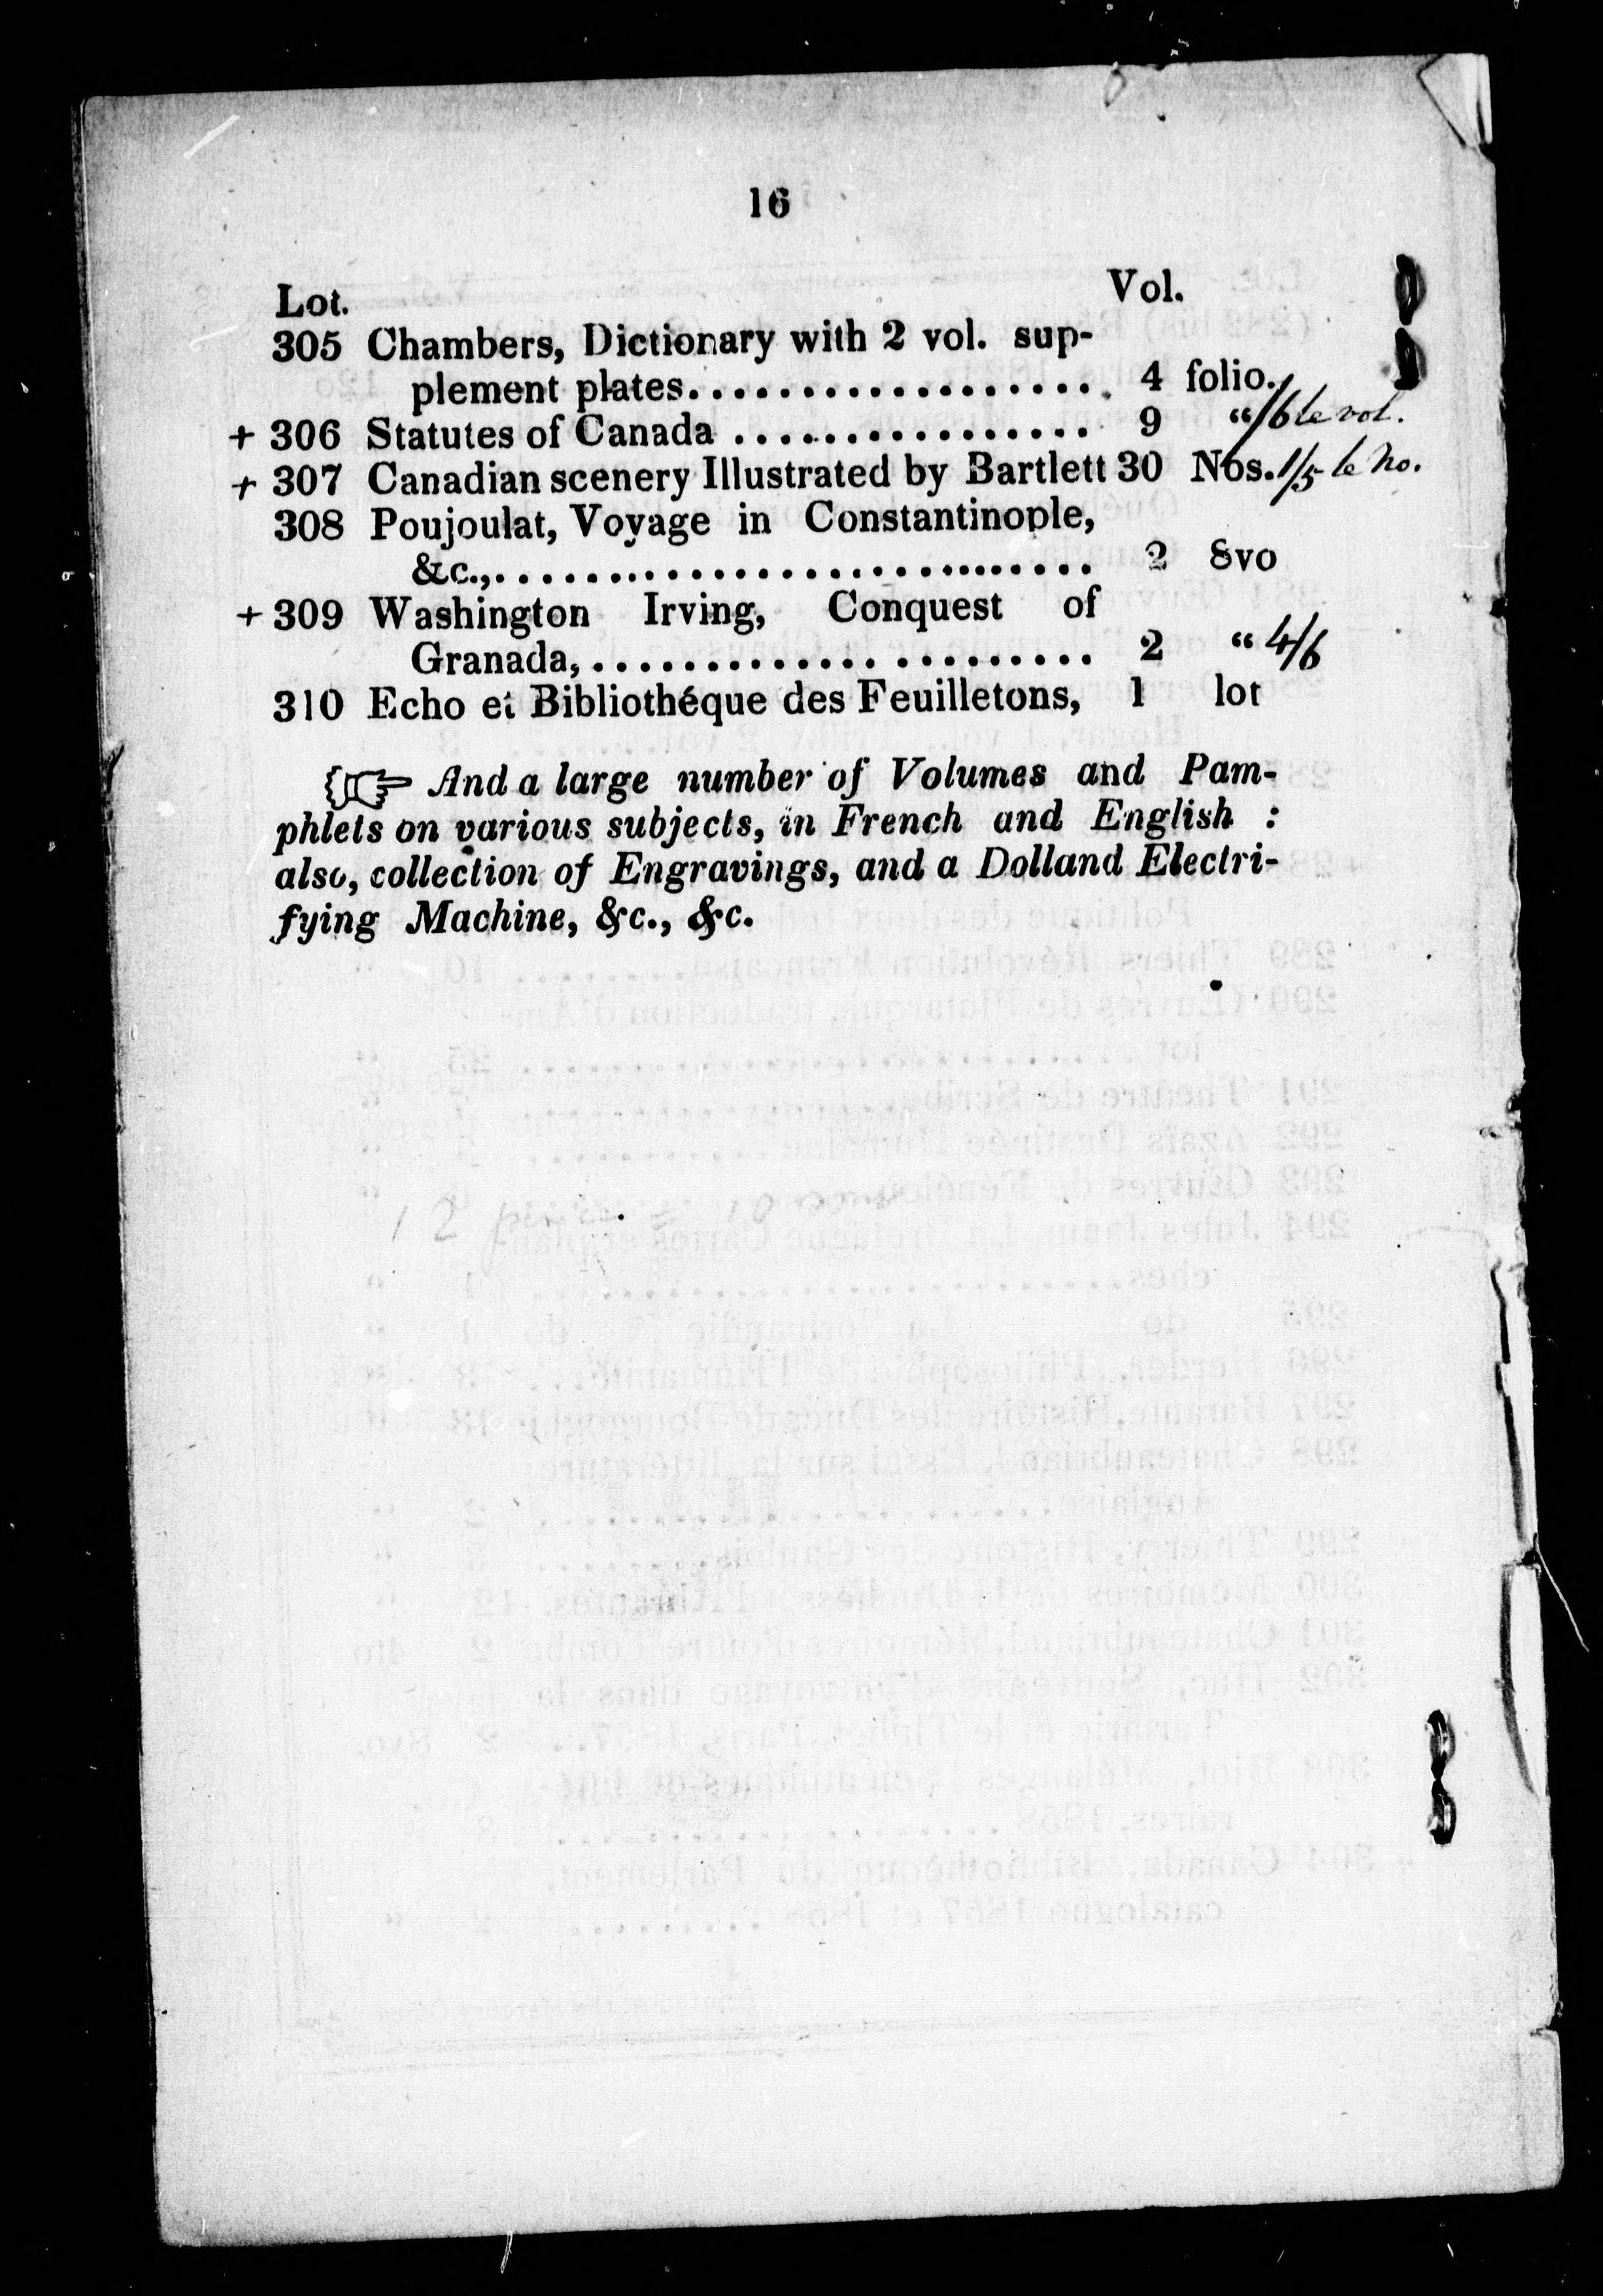 16
Lot. Vol.
305 Chambers, Dictionary with 2 vol. sup-
plement plates................... 4 folio.
+ 306 Statutes of Canada ................ 9 “ /6 le vol.
+ 307 Canadian scenery Illustrated by Bartlett 30 Nos. 1/5 le No.
308 Poujoulat, Voyage in Constantinople,
&c.,........................... 2 8vo
+ 309 Washington Irving, Conquest of
Granada,....................... 2 “ 4/6
310 Echo et Bibliothéque des Feuilletons, 1 lot
☞ And a large number of Volumes and Pam-
phlets on various subjects, in French and English :
also, collection of Engravings, and a Dolland Electri-
fying Machine, &c., &c.
12